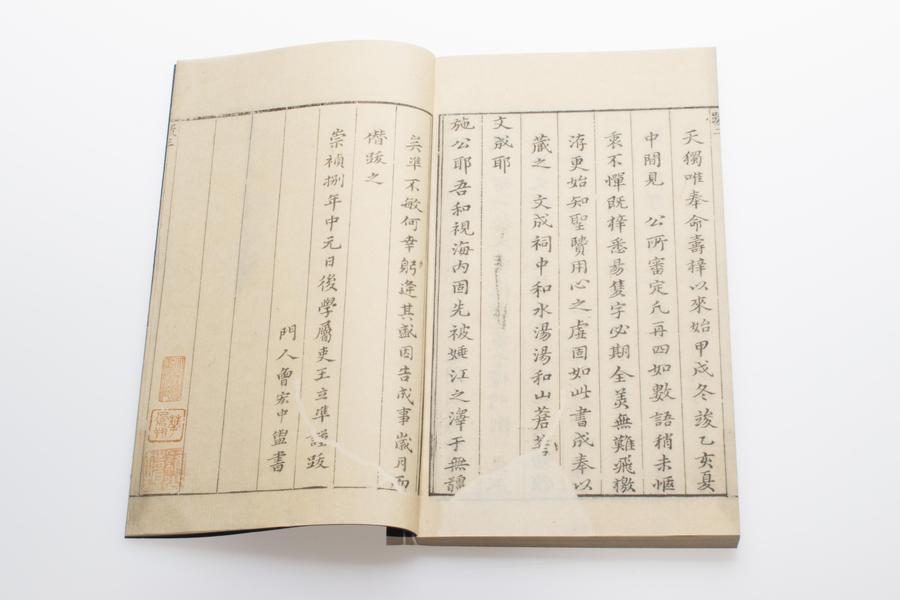 天獨唯奉命壽梓以來始甲戌冬竣乙亥夏
中間見 公所審定凡再四如數語稍未愜
衷不憚既梓悉易隻字必期全美無難飛檄
洊更始知聖賢用心之虛固如此書成奉以
藏之 文成祠中和水湯湯和山蒼蒼
文成耶
施公耶吾和視海內固先被姚江之澤于無疆
矣準不敏何幸躬逢其盛因告成事歲月而
僭跋之
崇禎捌年中元日後學屬吏王立準謹跋
門人曾宏中盥書